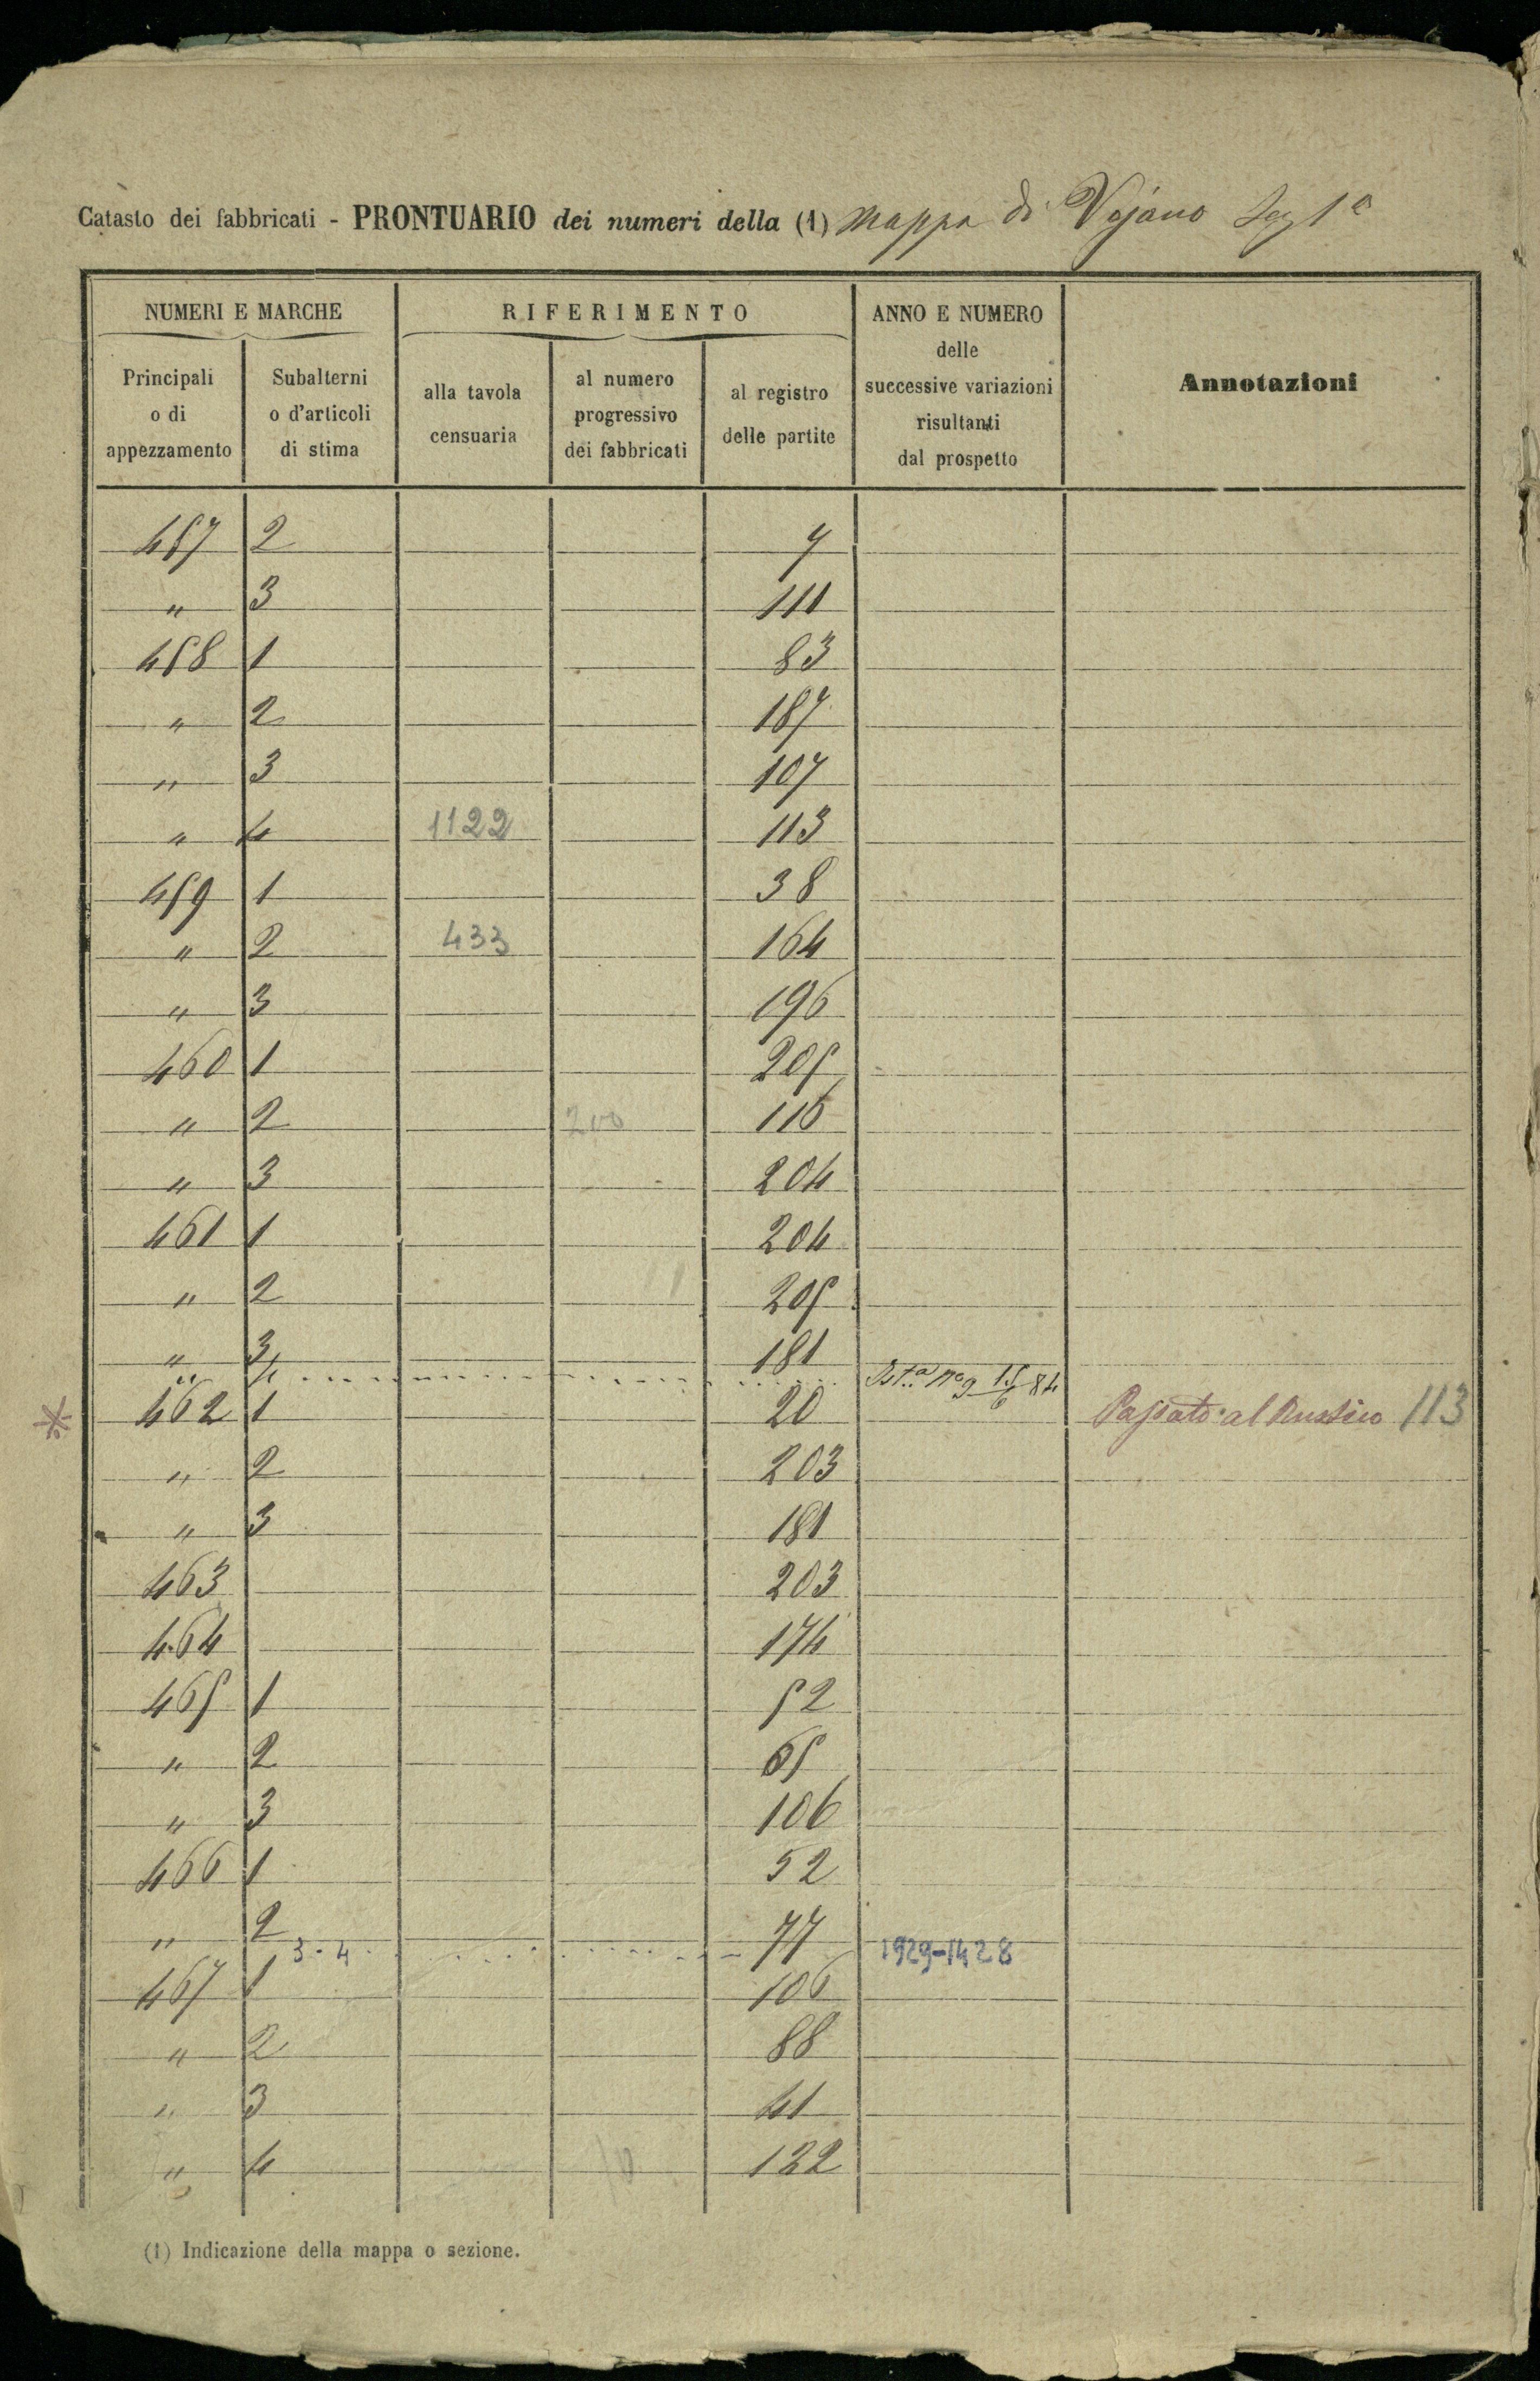 Catasto dei fabbricati - PRONTUARIO dei numeri della (1) Mappa di Vajano Sez 1a
NUMERI E MARCHE
RIFERIMENTO
ANNO E NUMERO
delle
successive variazioni
risultanti
dal prospetto
Annotazioni
Principali
o di
appezzamento
Subalterni
o d'articoli
di stima
alla tavola
censuaria
al numero
progressivo
dei fabbricati
al registro
delle partite
457 2 7
" 3 111
458 1 83
" 2 187
" 3 107
" 4 1122 113
459 1 38
" 2 433 164
" 3 196
460 1 205
" 2 200 116
" 3 204
461 1 204
" 2 205
" 3 181
" 4 15/6 84
462 1 20 Passato al Rustico 113
" 2 203
" 3 181
463 203
464 174
465 1 52
" 2 65
" 3 106
466 1 52
" 2 77
3-4 1929-1428
467 1 106
" 2 88
" 3 41
" 4 122
(1) Indicazione della mappa o sezione.